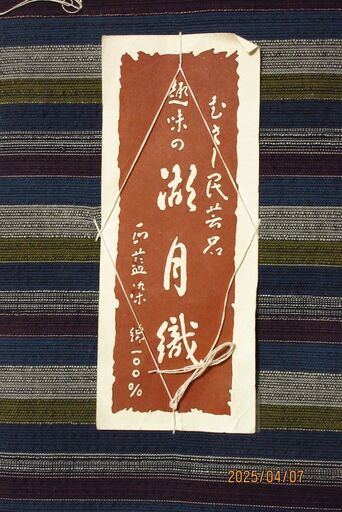 むさし民芸品
趣味の
湖月織
正藍染 綿一〇〇%
2025/04/07